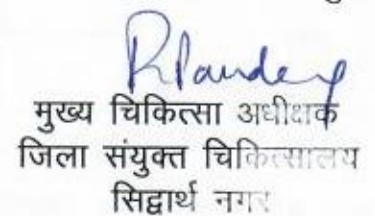 RPandey
मुख्य चिकित्सा अधीक्षक
जिला संयुक्त चिकित्सालय
सिद्वार्थ नगर